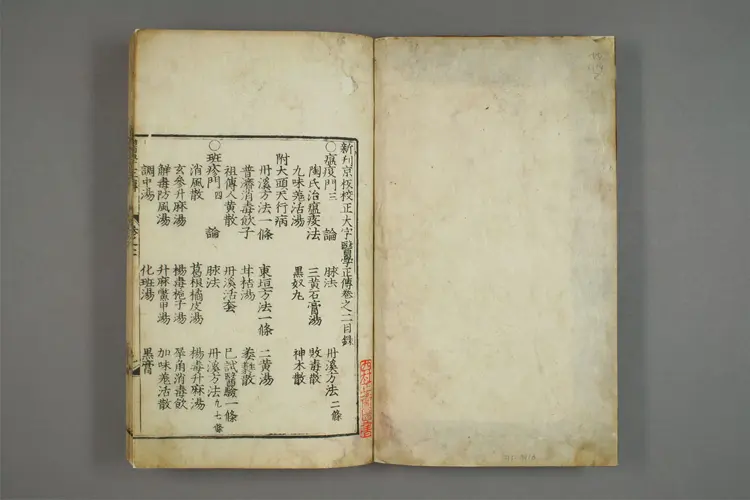 新刋京板校正大字醫學正傳卷之二目錄
○瘟疫門三 論 脉法 丹溪方法二條
陶氏治瘟疫法 三黃石膏湯 敗毒散
九味羗活湯 黑奴丸 神术散
附大頭天行病
丹溪方法一條 東垣方法一條 二黃湯
普濟消毒飲子 甘桔湯
祖傳人黃散 丹溪活套 已試醫驗一條
○斑疹門四 論 脉法 丹溪方法九七條
消風散 葛根橘皮湯 楊毒升麻湯
玄參升麻湯 楊毒梔子湯 犀角消毒飲
解毒防風湯 升麻鱉甲湯 加味羗活散
調中湯 化斑湯 黑膏